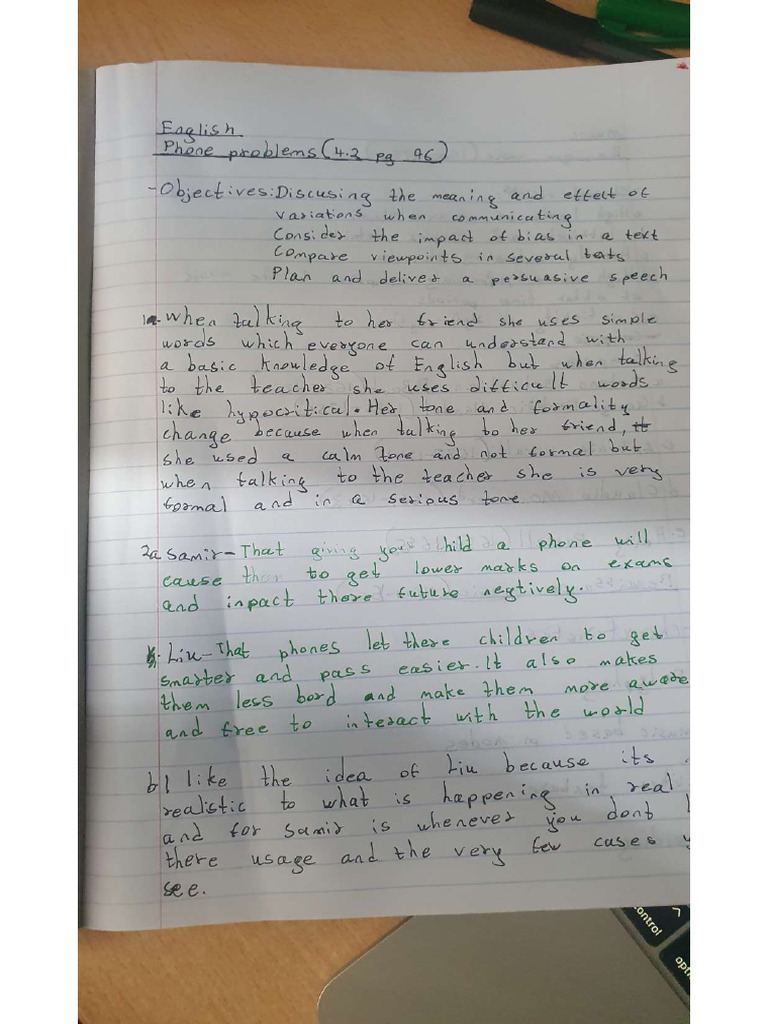 English
Phone problems (4.2 pg 96)
- Objectives: Discusing the meaning and effect of
variations when communicating
Consider the impact of bias in a text
Compare viewpoints in several texts
Plan and deliver a persuasive speech
1a- When talking to her friend she uses simple
words which everyone can understand with
a basic knowledge of English but when talking
to the teacher she uses difficult words
like hypocritical. Her tone and formality
change because when talking to her friend,
she used a calm tone and not formal but
when talking to the teacher she is very
formal and in a serious tone
2a Samir- That giving your child a phone will
cause them to get lower marks on exams
and inpact there future negtively.
Liu- That phones let there children to get
smarter and pass easier. It also makes
them less bord and make them more aware
and free to interact with the world
b) I like the idea of Liu because its
realistic to what is happening in real
and for Samir is whenever you dont
there usage and the very few cases
see.
control